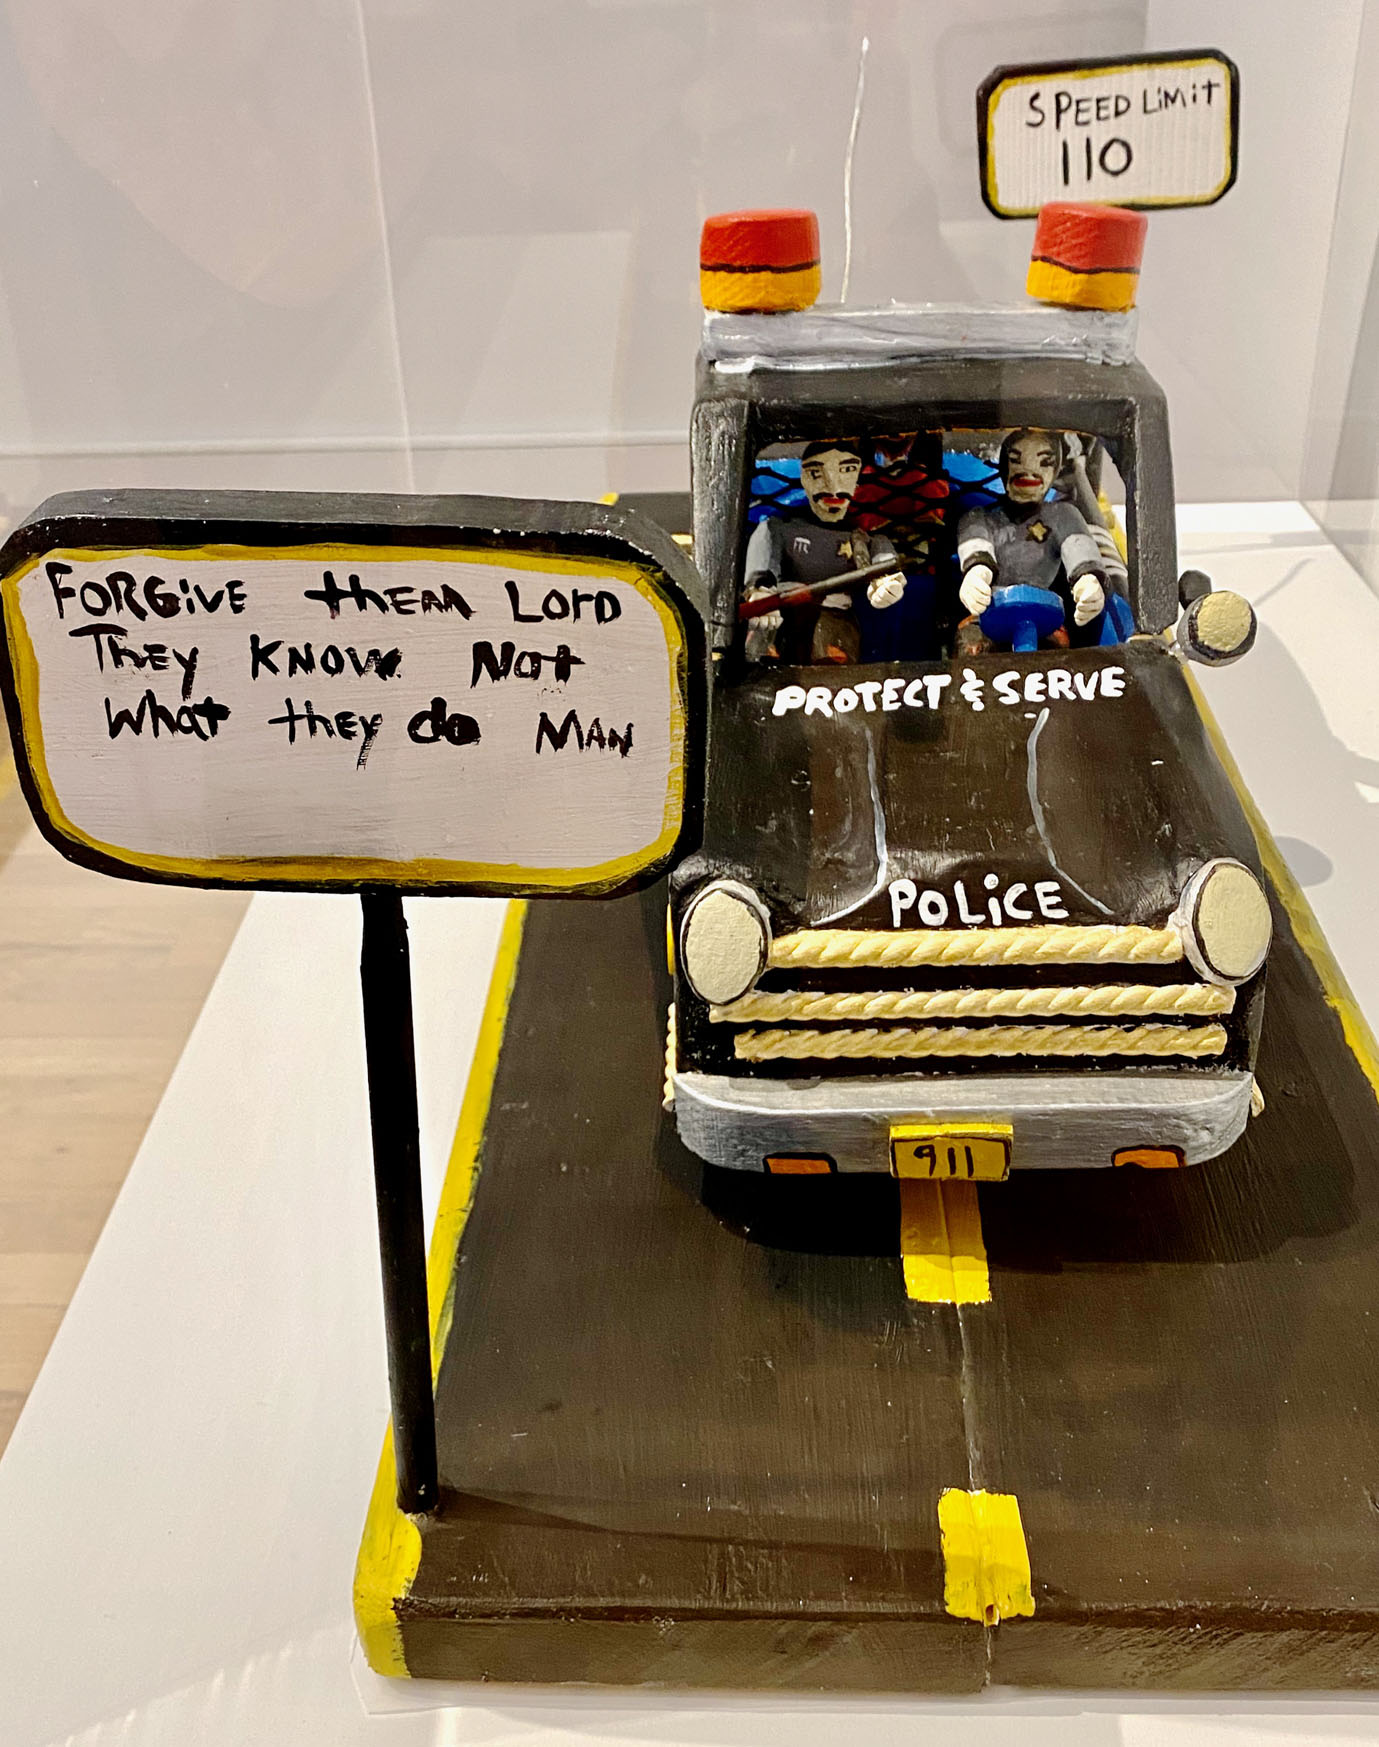 SPEED LiMit
110
FORGiVE thEM LOrD
ThEy KNOW Not
What they do MAN
PROTECT & SERVE
POLiCE
911